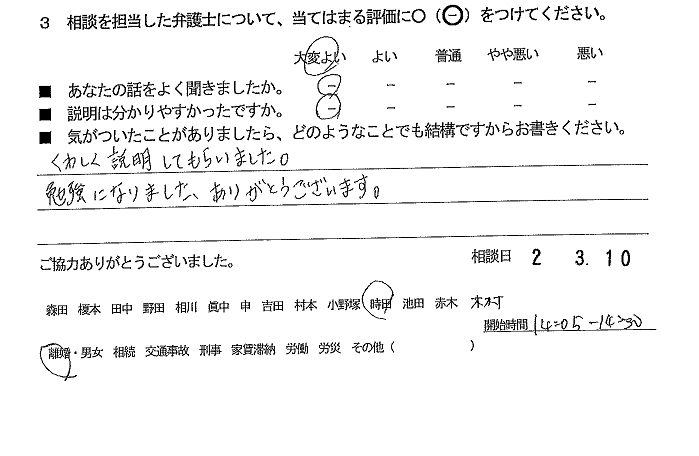 3 相談を担当した弁護士について、当てはまる評価に〇(㊀)をつけてください。
大変よい よい 普通 やや悪い 悪い
■ あなたの話をよく聞きましたか。 － － － － －
■ 説明は分かりやすかったですか。 － － － － －
■ 気がついたことがありましたら、どのようなことでも結構ですからお書きください。
くわしく説明してもらいました。
勉強になりました、ありがとうございます。
ご協力ありがとうございました。 相談日 2 3.10
森田 榎本 田中 野田 相川 眞中 申 吉田 村本 小野塚 時田 池田 赤木 木村
開始時間 14:05-14:30
離婚・男女 相続 交通事故 刑事 家賃滞納 労働 労災 その他( )